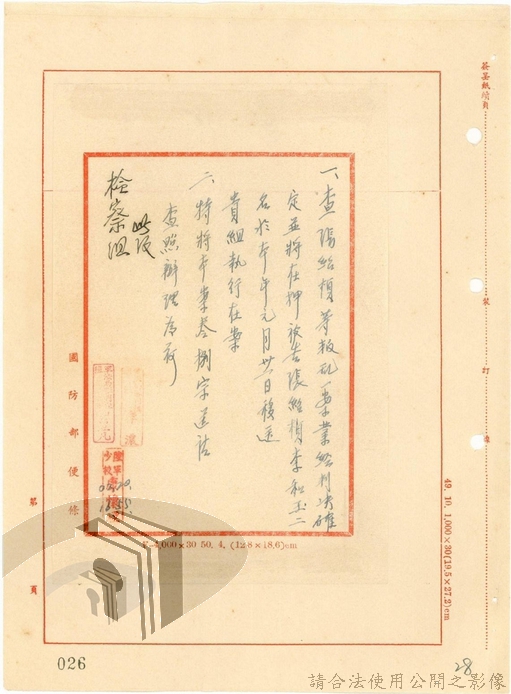 簽呈紙續頁
裝
訂
線
一、查張紹楨等叛亂一案業經判決確
定並將在押被告張紹楨李和玉二
名於本年元月廿日移送
貴組執行在案
二、特將本案叁捌宗送請
查照辦理為荷
此致
檢察組
國防部便條
第
頁
1,000×30 50. 4. (12.8×18.6)cm
49. 10. 1,000×30(19.5×27.2)cm
026
28
請合法使用公開之影像